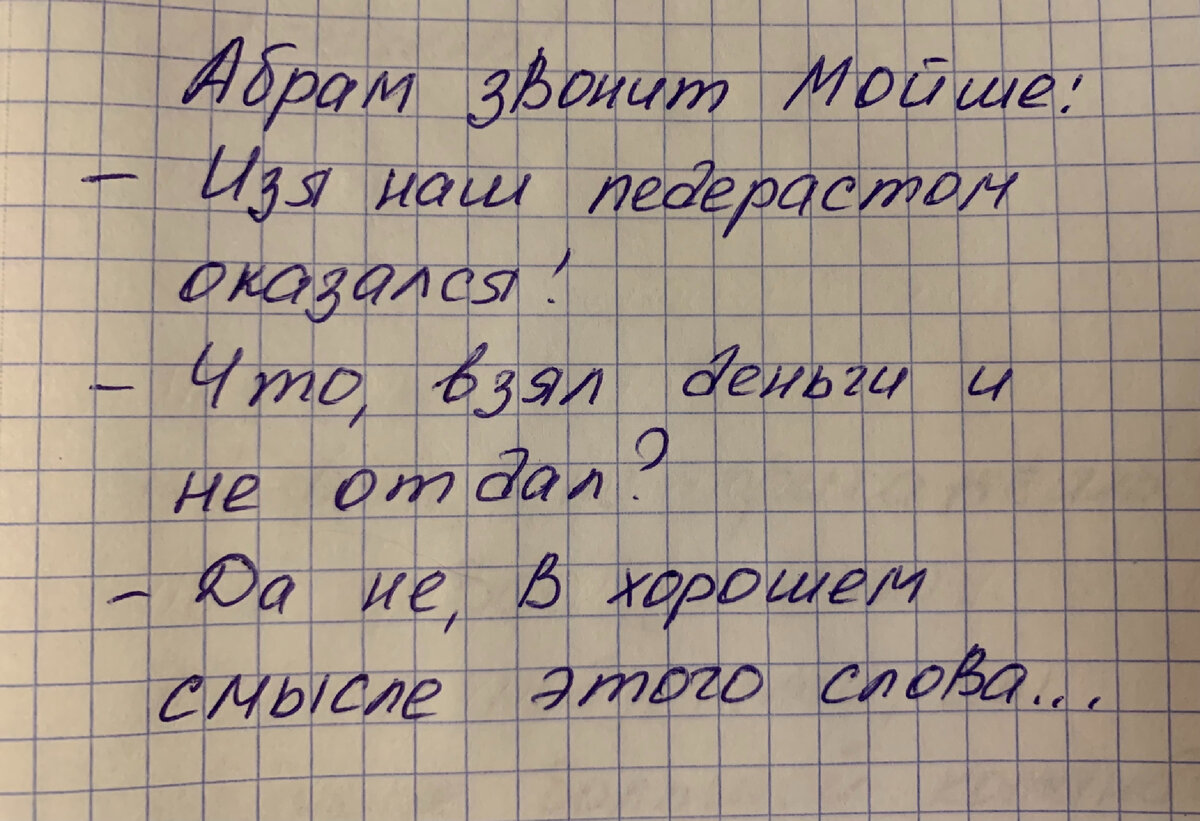 Абрам звонит Мойше:
- Изя наш педерастом
оказался!
- Что, взял деньги и
не отдал?
- Да не, в хорошем
смысле этого слова...